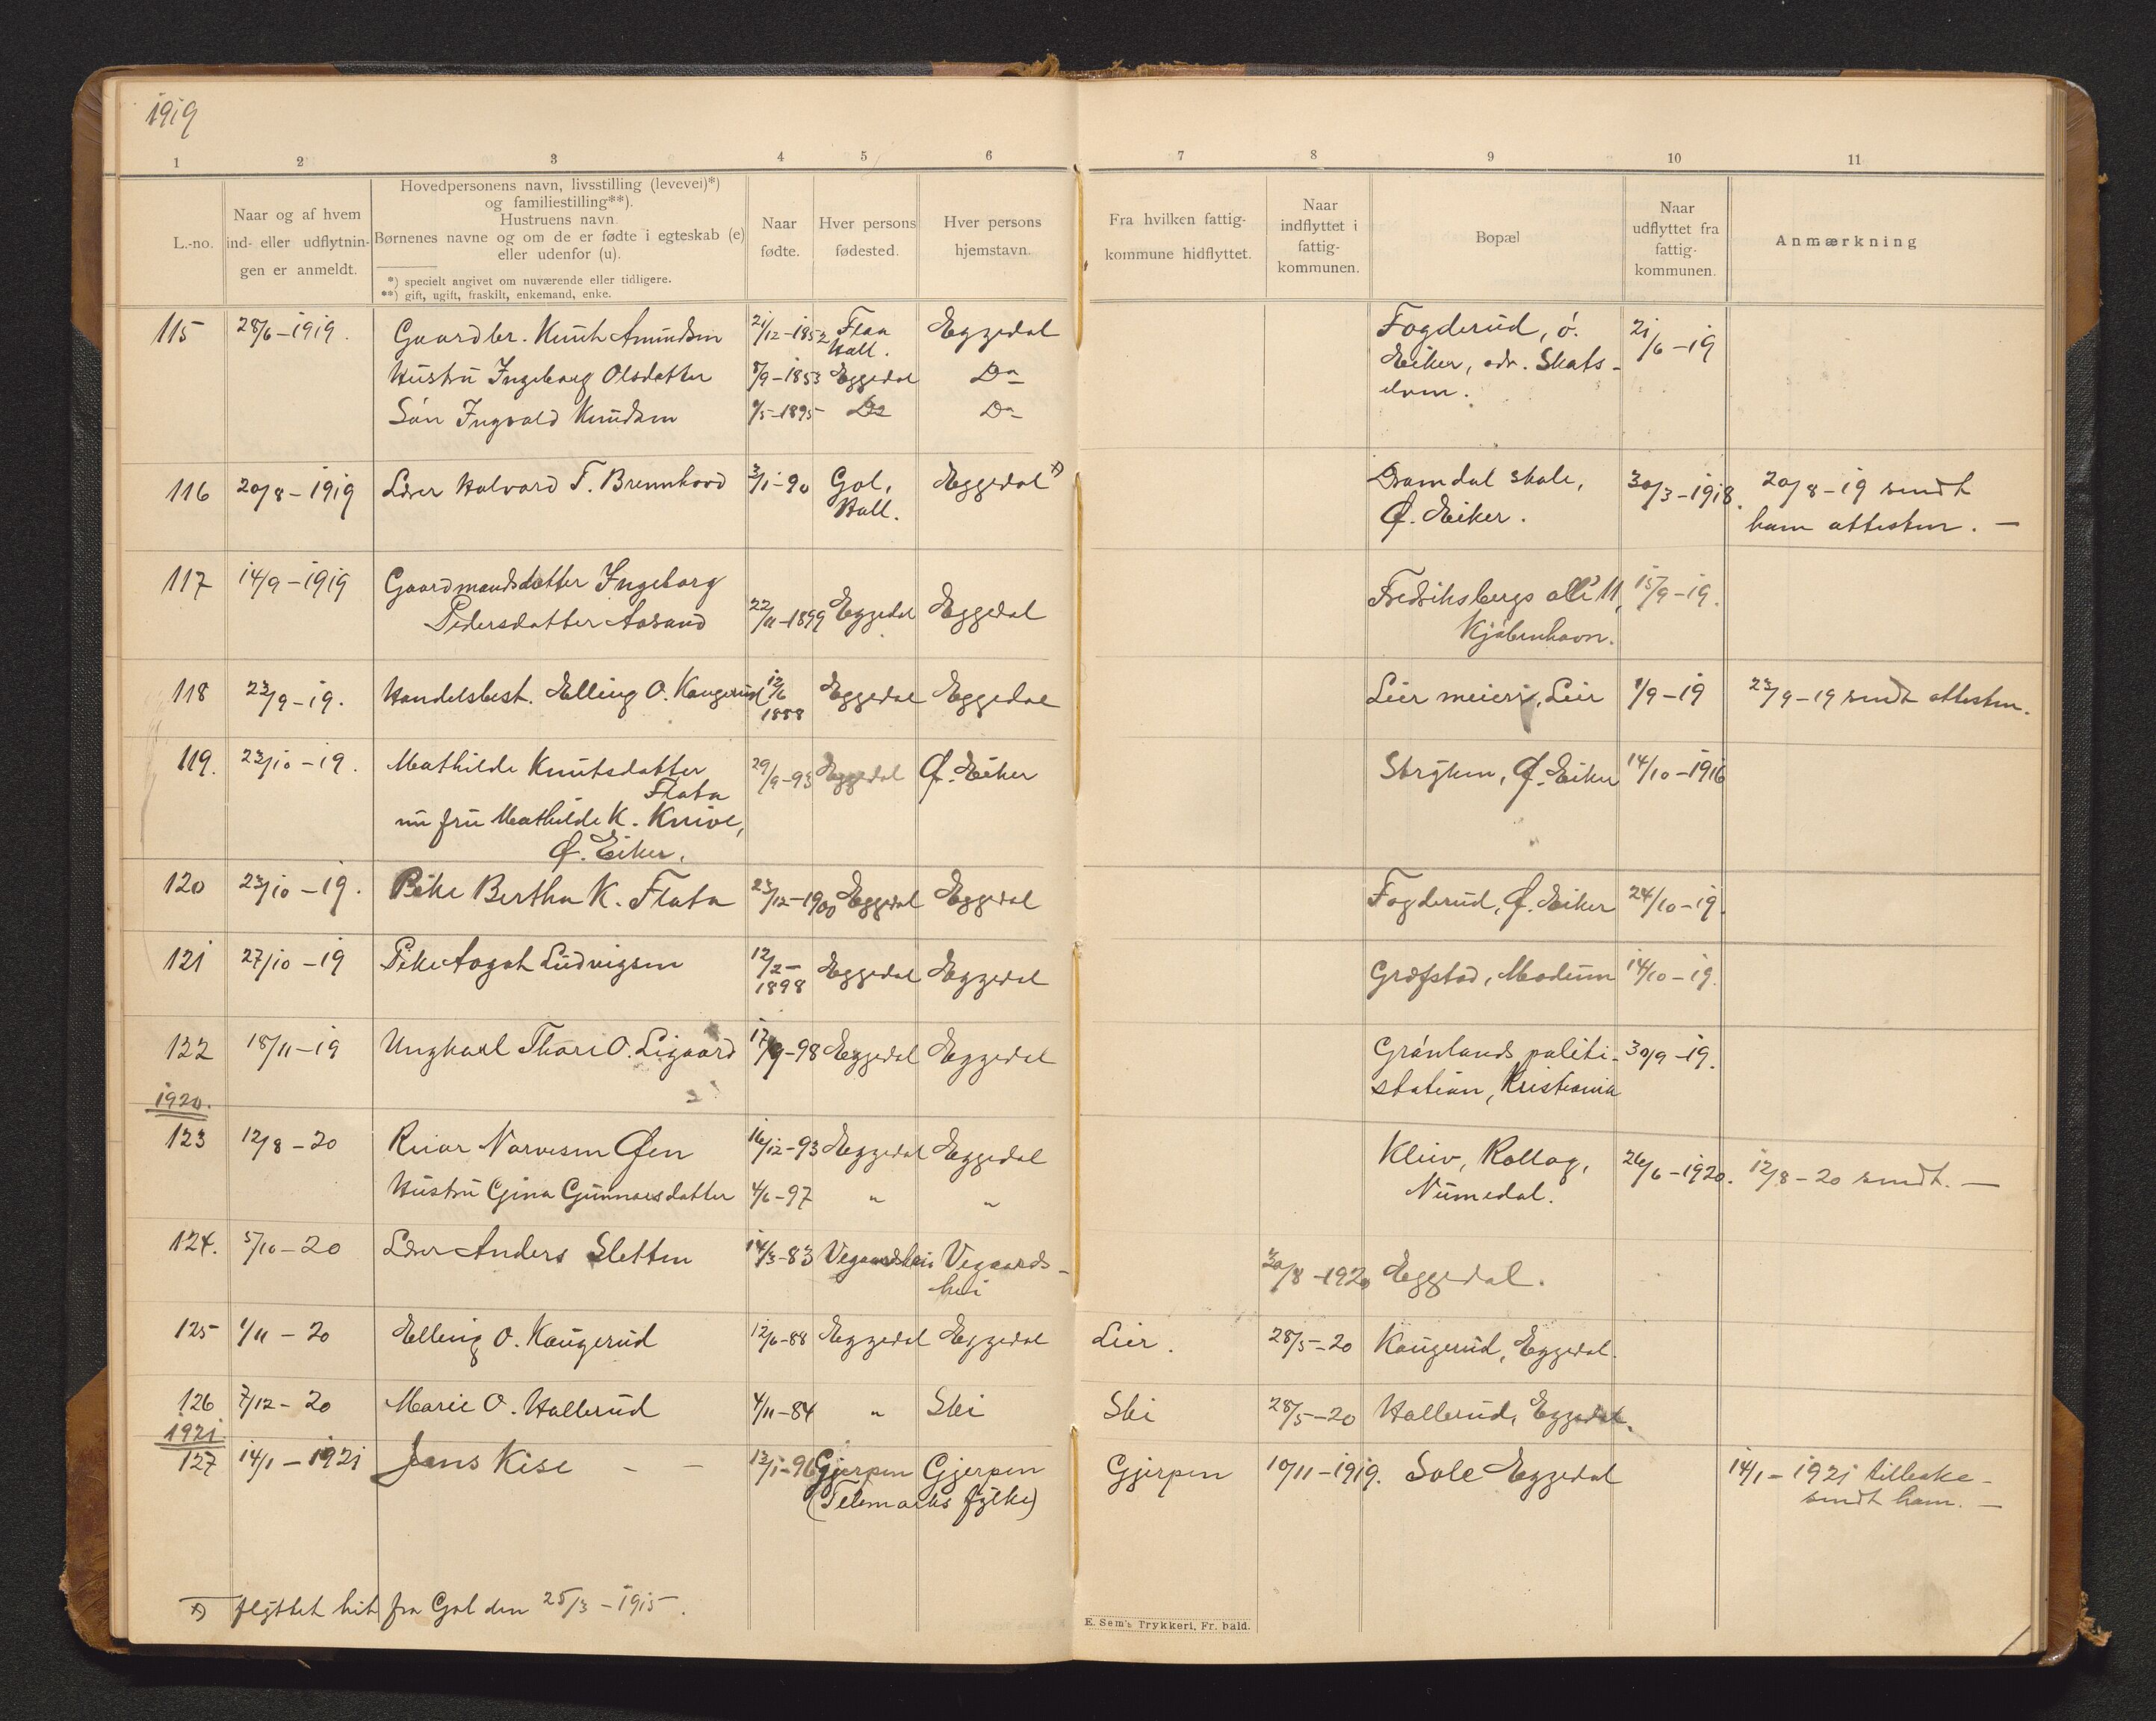 1919
1 2 3 4 5 6 7 8 9 10 11
L.-no.
Naar og af hvem
ind- eller udflytnin-
gen er anmeldt.
Hovedpersonens navn, livsstilling (levevei)*)
og familiestilling**).
Hustruens navn.
Børnenes navne og om de er fødte i egteskab (e)
eller udenfor (u).
*) specielt angivet om nuværende eller tidligere.
**) gift, ugift, fraskilt, enkemand, enke.
Naar
fødte.
Hver persons
fødested.
Hver persons
hjemstavn.
Fra hvilken fattig-
kommune hidflyttet.
Naar
indflyttet i
fattig-
kommunen.
Bopæl
Naar
udflyttet fra
fattig-
kommunen.
Anmærkning
115 28/6-1919. Gaardbr. Knut Amundsen 21/12-1852 Flaa Eggedal Fogderud, ö. 21/6-19
Hall. Eiker, adr. Skots-
Hustru Ingeborg Olsdatter 8/9-1853 Eggedal Do elven.
Sön Ingvald Knudsen 9/5-1895 Do Do
116 20/8-1919 Lærer Halvard T. Brennhovd 3/1-90 Gol, Eggedal x) Damdal skole, 30/3-1918. 20/8-19 sendt
Hall. Ø. Eiker. ham attesten. —
117 14/9-1919 Gaardmandsdatter Ingeborg Fredriksbergs allé 11, 15/9-19.
Pedersdatter Aasand 22/11-1899 Eggedal Eggedal Kjöbenhavn.
118 23/9-19. Handelsbest. Elling O. Kaugerud 12/6 1888 Eggedal Eggedal Lier meieri, Lier 1/9-19 23/9-19 sendt attesten.
119. 23/10-19. Mathilde Knutsdatter 29/9-93 Eggedal Ø. Eiker Stryken, Ø. Eiker 14/10-1916
Flata
nu fru Mathilde K. Knive,
Ø. Eiker.
120 23/10-19. Pike Bertha K. Flata 23/12-1900 Eggedal Eggedal Fogderud, Ø. Eiker 24/10-19.
121 27/10-19 Pike Aagot Ludvigsen 12/2-1898 Eggedal Eggedal Græfstad, Modum 14/10-19.
122 18/11-19 Ungkarl Thore O. Ligaard 17/9-98 Eggedal Eggedal Grönlands politi- 30/9-19.
station, Kristiania
1920.
123 12/8-20 Reiar Narvesen Øen 16/12-93 Eggedal Eggedal Kleiv, Rollag, 26/6-1920. 12/8-20 sendt. —
Hustru Gina Gunnarsdatter 4/6-97 " " Numedal.
124. 5/10-20 Lærer Anders Sletten 14/3-83 Vegaardshei Vegaards- 30/8-1920 Eggedal.
hei
125 1/11-20 Elling O. Kaugerud 12/6-88 Eggedal Eggedal Lier. 28/5-20 Kaugerud, Eggedal.
126 7/12-20 Marie O. Hallerud 4/11-84 " Ski Ski 28/5-20 Hallerud, Eggedal.
1921.
127 14/1-1921 Jens Kise - - 13/1-96 Gjerpen Gjerpen Gjerpen 10/11-1919. Sole Eggedal 14/1-1921 tilbake-
(Telemarks fylke) sendt ham. —
x) flyttet hit fra Gol den 25/3-1915.
E. Sem's Trykkeri, Fr. hald.